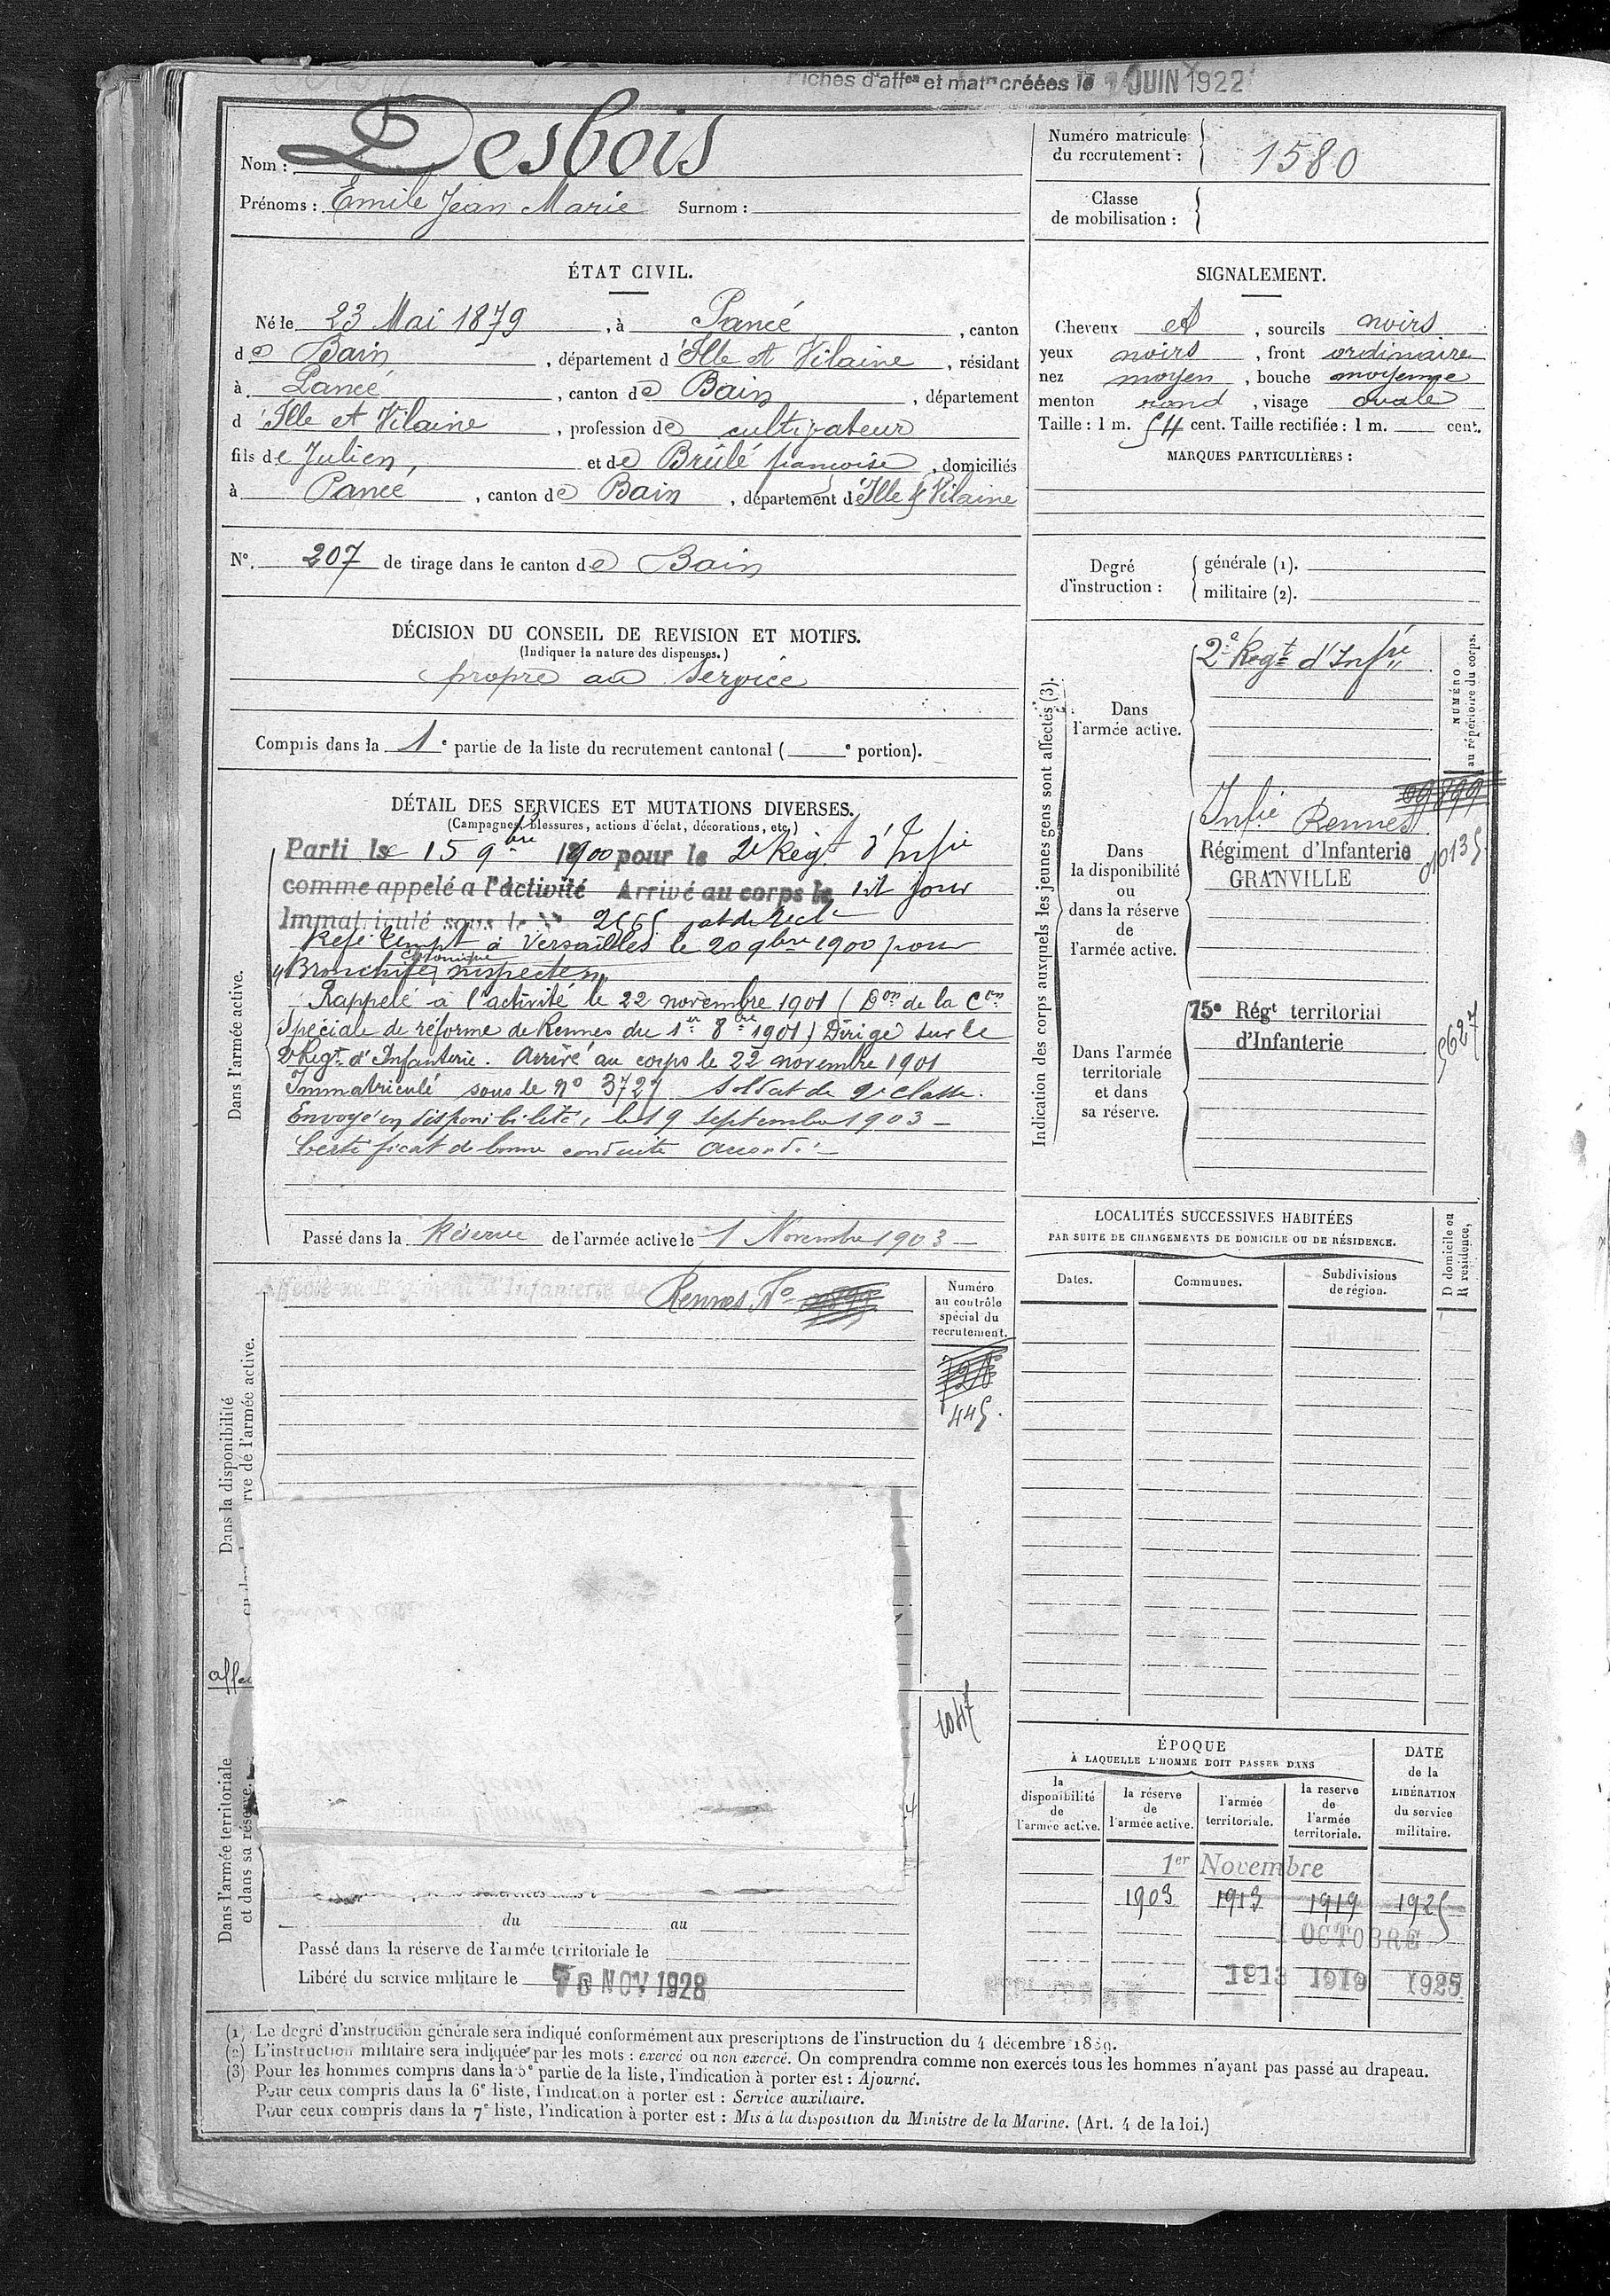 Fiches d'aff^on et mat^r créées le JUIN 1922
Nom : Desbois
Prénoms : Emile Jean Marie Surnom :
Numéro matricule du recrutement : 1580
Classe de mobilisation :
ÉTAT CIVIL.
Né le 23 Mai 1879, à Pancé, canton
de Bain, département d'Ille et Vilaine, résidant
à Pancé, canton de Bain, département
d'Ille et Vilaine, profession de cultivateur
fils de Julien, et de Brûlé françoise, domiciliés
à Pancé, canton de Bain, département d'Ille & Vilaine
N°. 207 de tirage dans le canton de Bain
SIGNALEMENT.
Cheveux et, sourcils noirs
yeux noirs, front ordinaire
nez moyen, bouche moyenne
menton rond, visage ovale
Taille : 1 m. 54 cent. Taille rectifiée : 1 m. cent.
MARQUES PARTICULIÈRES :
Degré d'instruction :
générale (1).
militaire (2).
DÉCISION DU CONSEIL DE REVISION ET MOTIFS.
(Indiquer la nature des dispenses.)
propre au service
Compris dans la 1e partie de la liste du recrutement cantonal ( e portion).
DÉTAIL DES SERVICES ET MUTATIONS DIVERSES.
(Campagnes, blessures, actions d'éclat, décorations, etc.)
Dans l'armée active.
Parti le 15 9bre 1900 pour le 2e Régt d'Infie
comme appelé à l'activité Arrivé au corps le dit jour
Immatriculé sous le N° 2565
Réfé tempt à Versailles le 20 9bre 1900 pour
"Bronchite chronique suspecte"
Rappelé à l'activité le 22 novembre 1901 (Don de la Con
Spéciale de réforme de Rennes du 1er 8bre 1901) Dirigé sur le
2e Régt d'Infanterie. Arrivé au corps le 22 novembre 1901
Immatriculé sous le n° 3727 soldat de 2e classe.
Envoyé en disponibilité, le 19 septembre 1903 —
Certificat de bonne conduite accordé —
Passé dans la Réserve de l'armée active le 1 Novembre 1903 —
Indication des corps auxquels les jeunes gens sont affectés (3).
NUMÉRO au répertoire du corps.
Dans l'armée active.
2e Régt d'Infrie
Dans la disponibilité ou dans la réserve de l'armée active.
Infie Rennes
Régiment d'Infanterie
GRANVILLE
Dans l'armée territoriale et dans sa réserve.
75e Régt territorial
d'Infanterie
5627
Dans la disponibilité
rve de l'armée active.
Affecté au Régiment d'Infanterie de Rennes N°
Numéro au contrôle spécial du recrutement.
728
445.
LOCALITÉS SUCCESSIVES HABITÉES
PAR SUITE DE CHANGEMENTS DE DOMICILE OU DE RÉSIDENCE.
Dates. Communes. Subdivisions de région.
D domicile ou R résidence,
affec
Dans l'armée territoriale et dans sa réserve.
du au
Passé dans la réserve de l'armée territoriale le
Libéré du service militaire le NOV 1928
ÉPOQUE
À LAQUELLE L'HOMME DOIT PASSER DANS
la disponibilité de l'armée active.
la réserve de l'armée active.
l'armée territoriale.
la réserve de l'armée territoriale.
DATE de la LIBÉRATION du service militaire.
1er Novembre
1903 1913 1919 1925
1 OCTOBRE
1913 1919 1925
(1) Le degré d'instruction générale sera indiqué conformément aux prescriptions de l'instruction du 4 décembre 1889.
(2) L'instruction militaire sera indiquée par les mots : exercé ou non exercé. On comprendra comme non exercés tous les hommes n'ayant pas passé au drapeau.
(3) Pour les hommes compris dans la 5e partie de la liste, l'indication à porter est : Ajourné.
Pour ceux compris dans la 6e liste, l'indication à porter est : Service auxiliaire.
Pour ceux compris dans la 7e liste, l'indication à porter est : Mis à la disposition du Ministre de la Marine. (Art. 4 de la loi.)